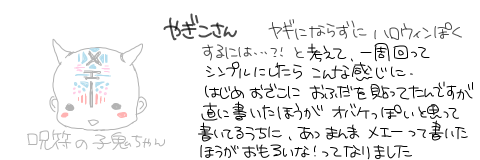 やぎこさん
ヤギにならずに ハロウィンぽく
するには…?! と考えて、一周回って
シンプルにしたら こんな感じに。
はじめ おでこに おふだを 貼ってたんですが
直に書いたほうが オバケっぽいと思って
書いてるうちに、あっ まんま メエーって書いた
ほうが おもろいな!ってなりました
メエー
呪符の子鬼ちゃん